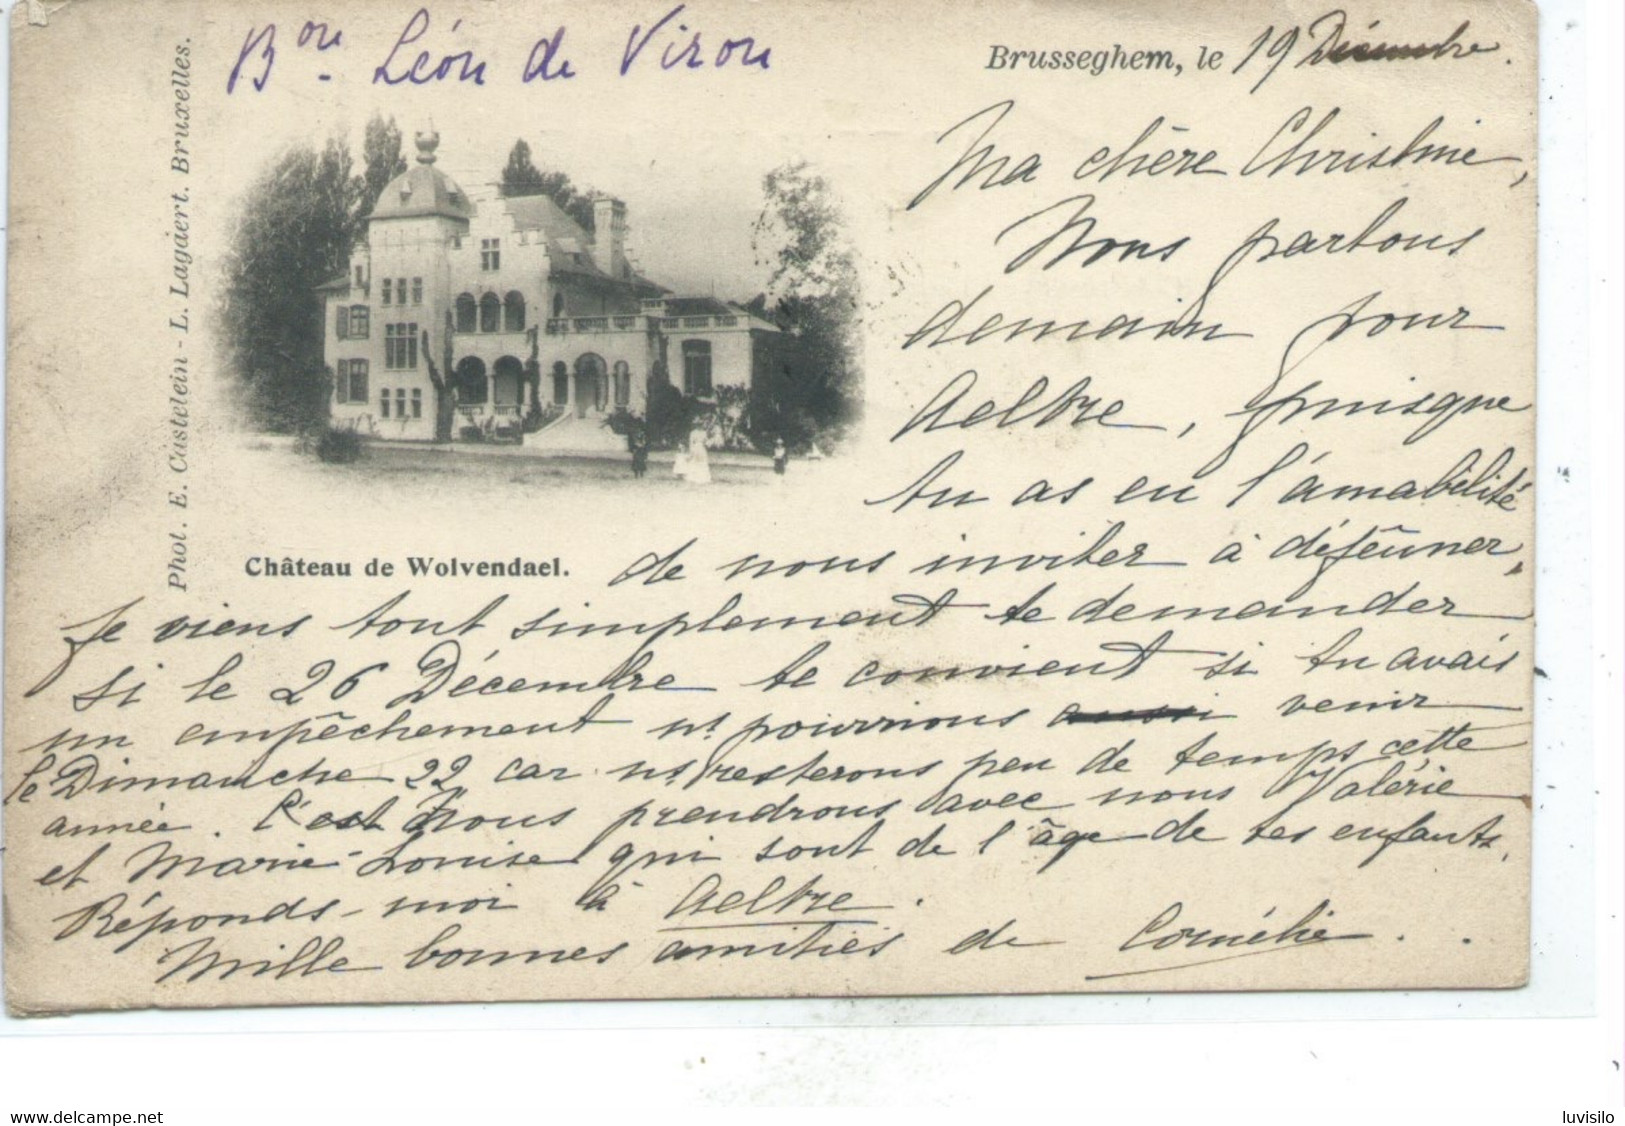 Bon Léon de Viron
Brusseghem, le 19 Décembre.
Phot. E. Castelein - L. Lagaert. Bruxelles.
Ma chère Christine,
Nous partons
demain pour
Aeltre, puisque
tu as eu l'amabilité
Château de Wolvendael.
de nous inviter à déjeûner,
Je viens tout simplement te demander
si le 26 Décembre te convient si tu avais
un empêchement ns pourrions aussi venir
le Dimanche 22 car ns resterons peu de temps cette
année. Nous prendrons avec nous Valérie
et Marie-Louise qui sont de l'âge de tes enfants.
Réponds-moi à Aeltre.
Mille bonnes amitiés de Cornélie..
www.delcampe.net
luvisilo